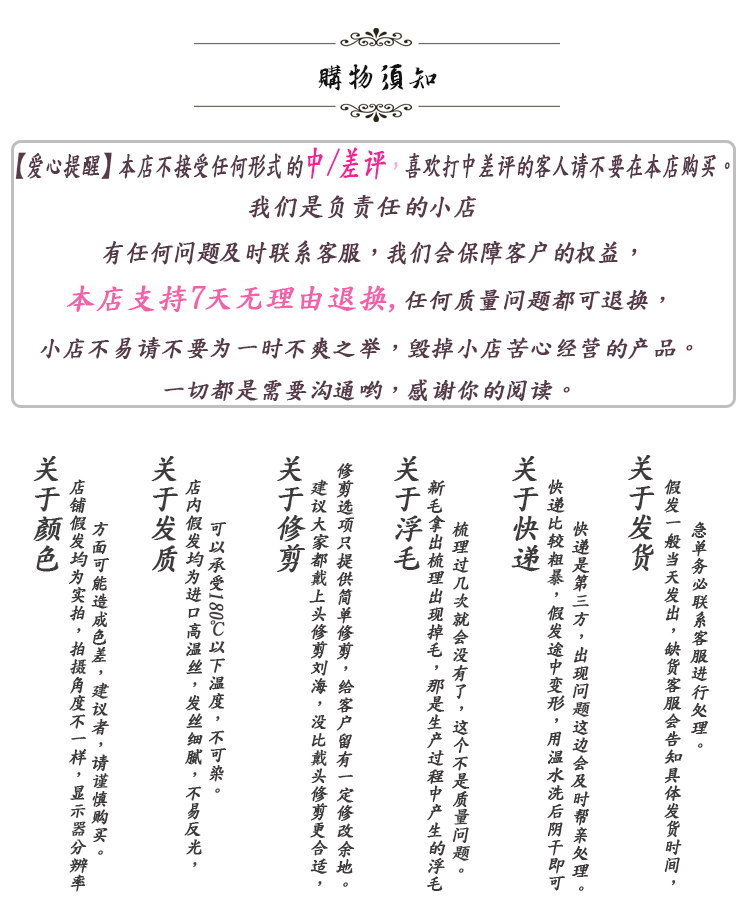 購物須知
【爱心提醒】本店不接受任何形式的中/差评，喜欢打中差评的客人请不要在本店购买。
我们是负责任的小店
有任何问题及时联系客服，我们会保障客户的权益，
本店支持7天无理由退换,任何质量问题都可退换，
小店不易请不要为一时不爽之举，毁掉小店苦心经营的产品。
一切都是需要沟通哟，感谢你的阅读。
关于颜色
店铺假发均为实拍，拍摄角度不一样，显示器分辨率
方面可能造成色差，建议者，请谨慎购买。
关于发质
店内假发均为进口高温丝，发丝细腻，不易反光，
可以承受180℃以下温度，不可染。
关于修剪
建议大家都戴上头修剪刘海，没比戴头修剪更合适，
修剪选项只提供简单修剪，给客户留有一定修改余地。
关于浮毛
新毛拿出梳理出现掉毛，那是生产过程中产生的浮毛
梳理过几次就会没有了，这个不是质量问题。
关于快递
快递比较粗暴，假发途中变形，用温水洗后阴干即可
快递是第三方，出现问题这边会及时帮亲处理。
关于发货
假发一般当天发出，缺货客服会告知具体发货时间，
急单务必联系客服进行处理。